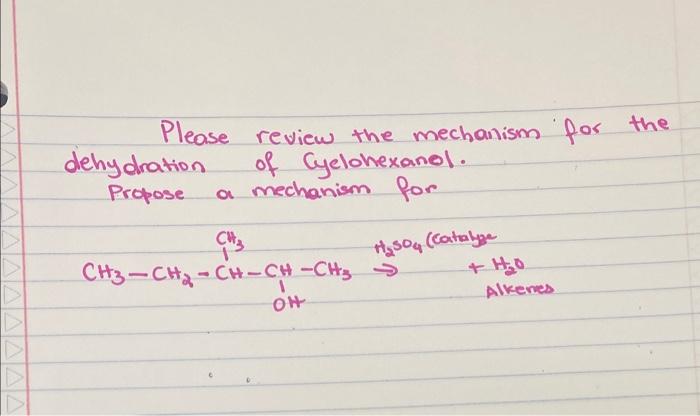 Please review the mechanism for the
dehydration of Cyclohexanol.
Propose a mechanism for
CH3
CH3-CH2-CH-CH-CH3 → + H2O
H2SO4 (Catalyze
OH
Alkenes